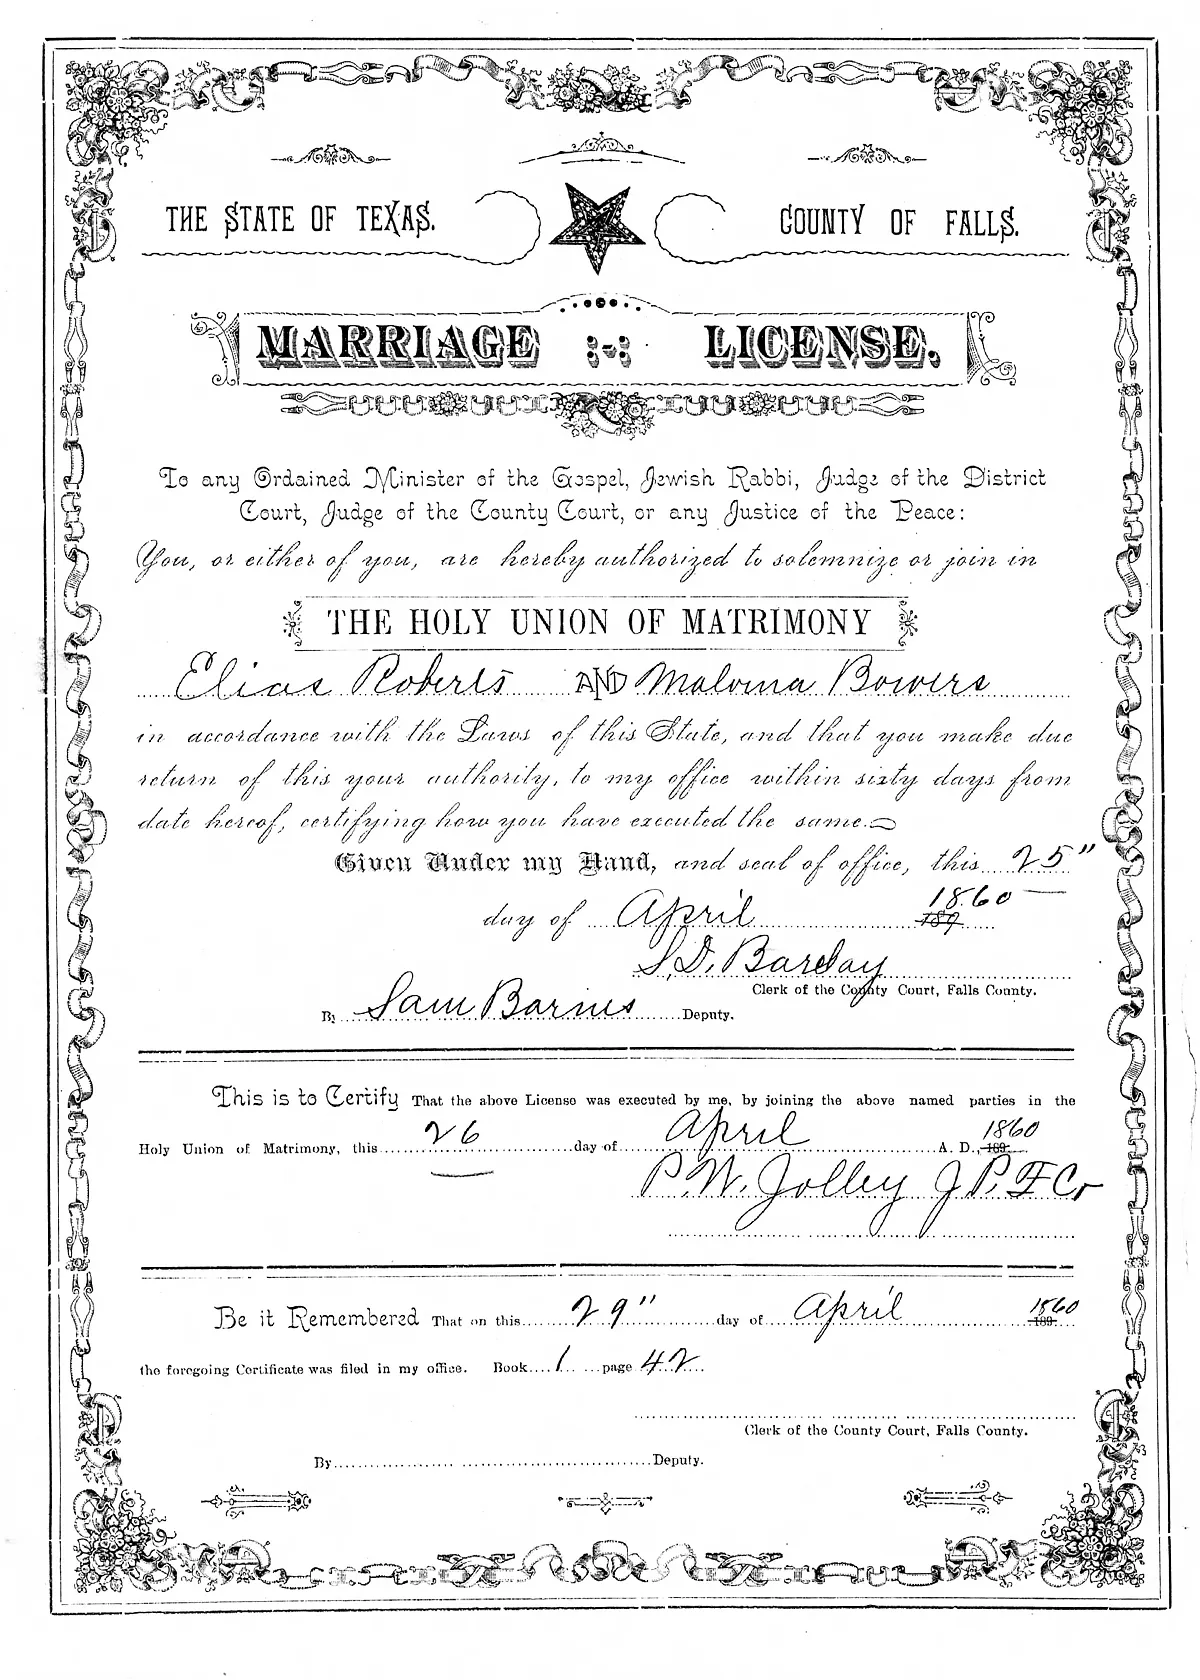 THE STATE OF TEXAS. COUNTY OF FALLS.
MARRIAGE LICENSE.
To any Ordained Minister of the Gospel, Jewish Rabbi, Judge of the District
Court, Judge of the County Court, or any Justice of the Peace:
You, or either of you, are hereby authorized to solemnize or join in
THE HOLY UNION OF MATRIMONY
Elias Roberts AND Maloma Bowers
in accordance with the Laws of this State, and that you make due
return of this your authority, to my office within sixty days from
date hereof, certifying how you have executed the same.
Given Under my Hand, and seal of office, this 25"
day of April 189 1860
S.D. Barclay
Clerk of the County Court, Falls County.
By Sam Barnes Deputy.
This is to Certify That the above License was executed by me, by joining the above named parties in the
Holy Union of Matrimony, this 26 day of April A. D., 189 1860
P.W. Jolley J.P. F Co
Be it Remembered That on this 29" day of April 189 1860
the foregoing Certificate was filed in my office. Book 1 page 42
Clerk of the County Court, Falls County.
By Deputy.